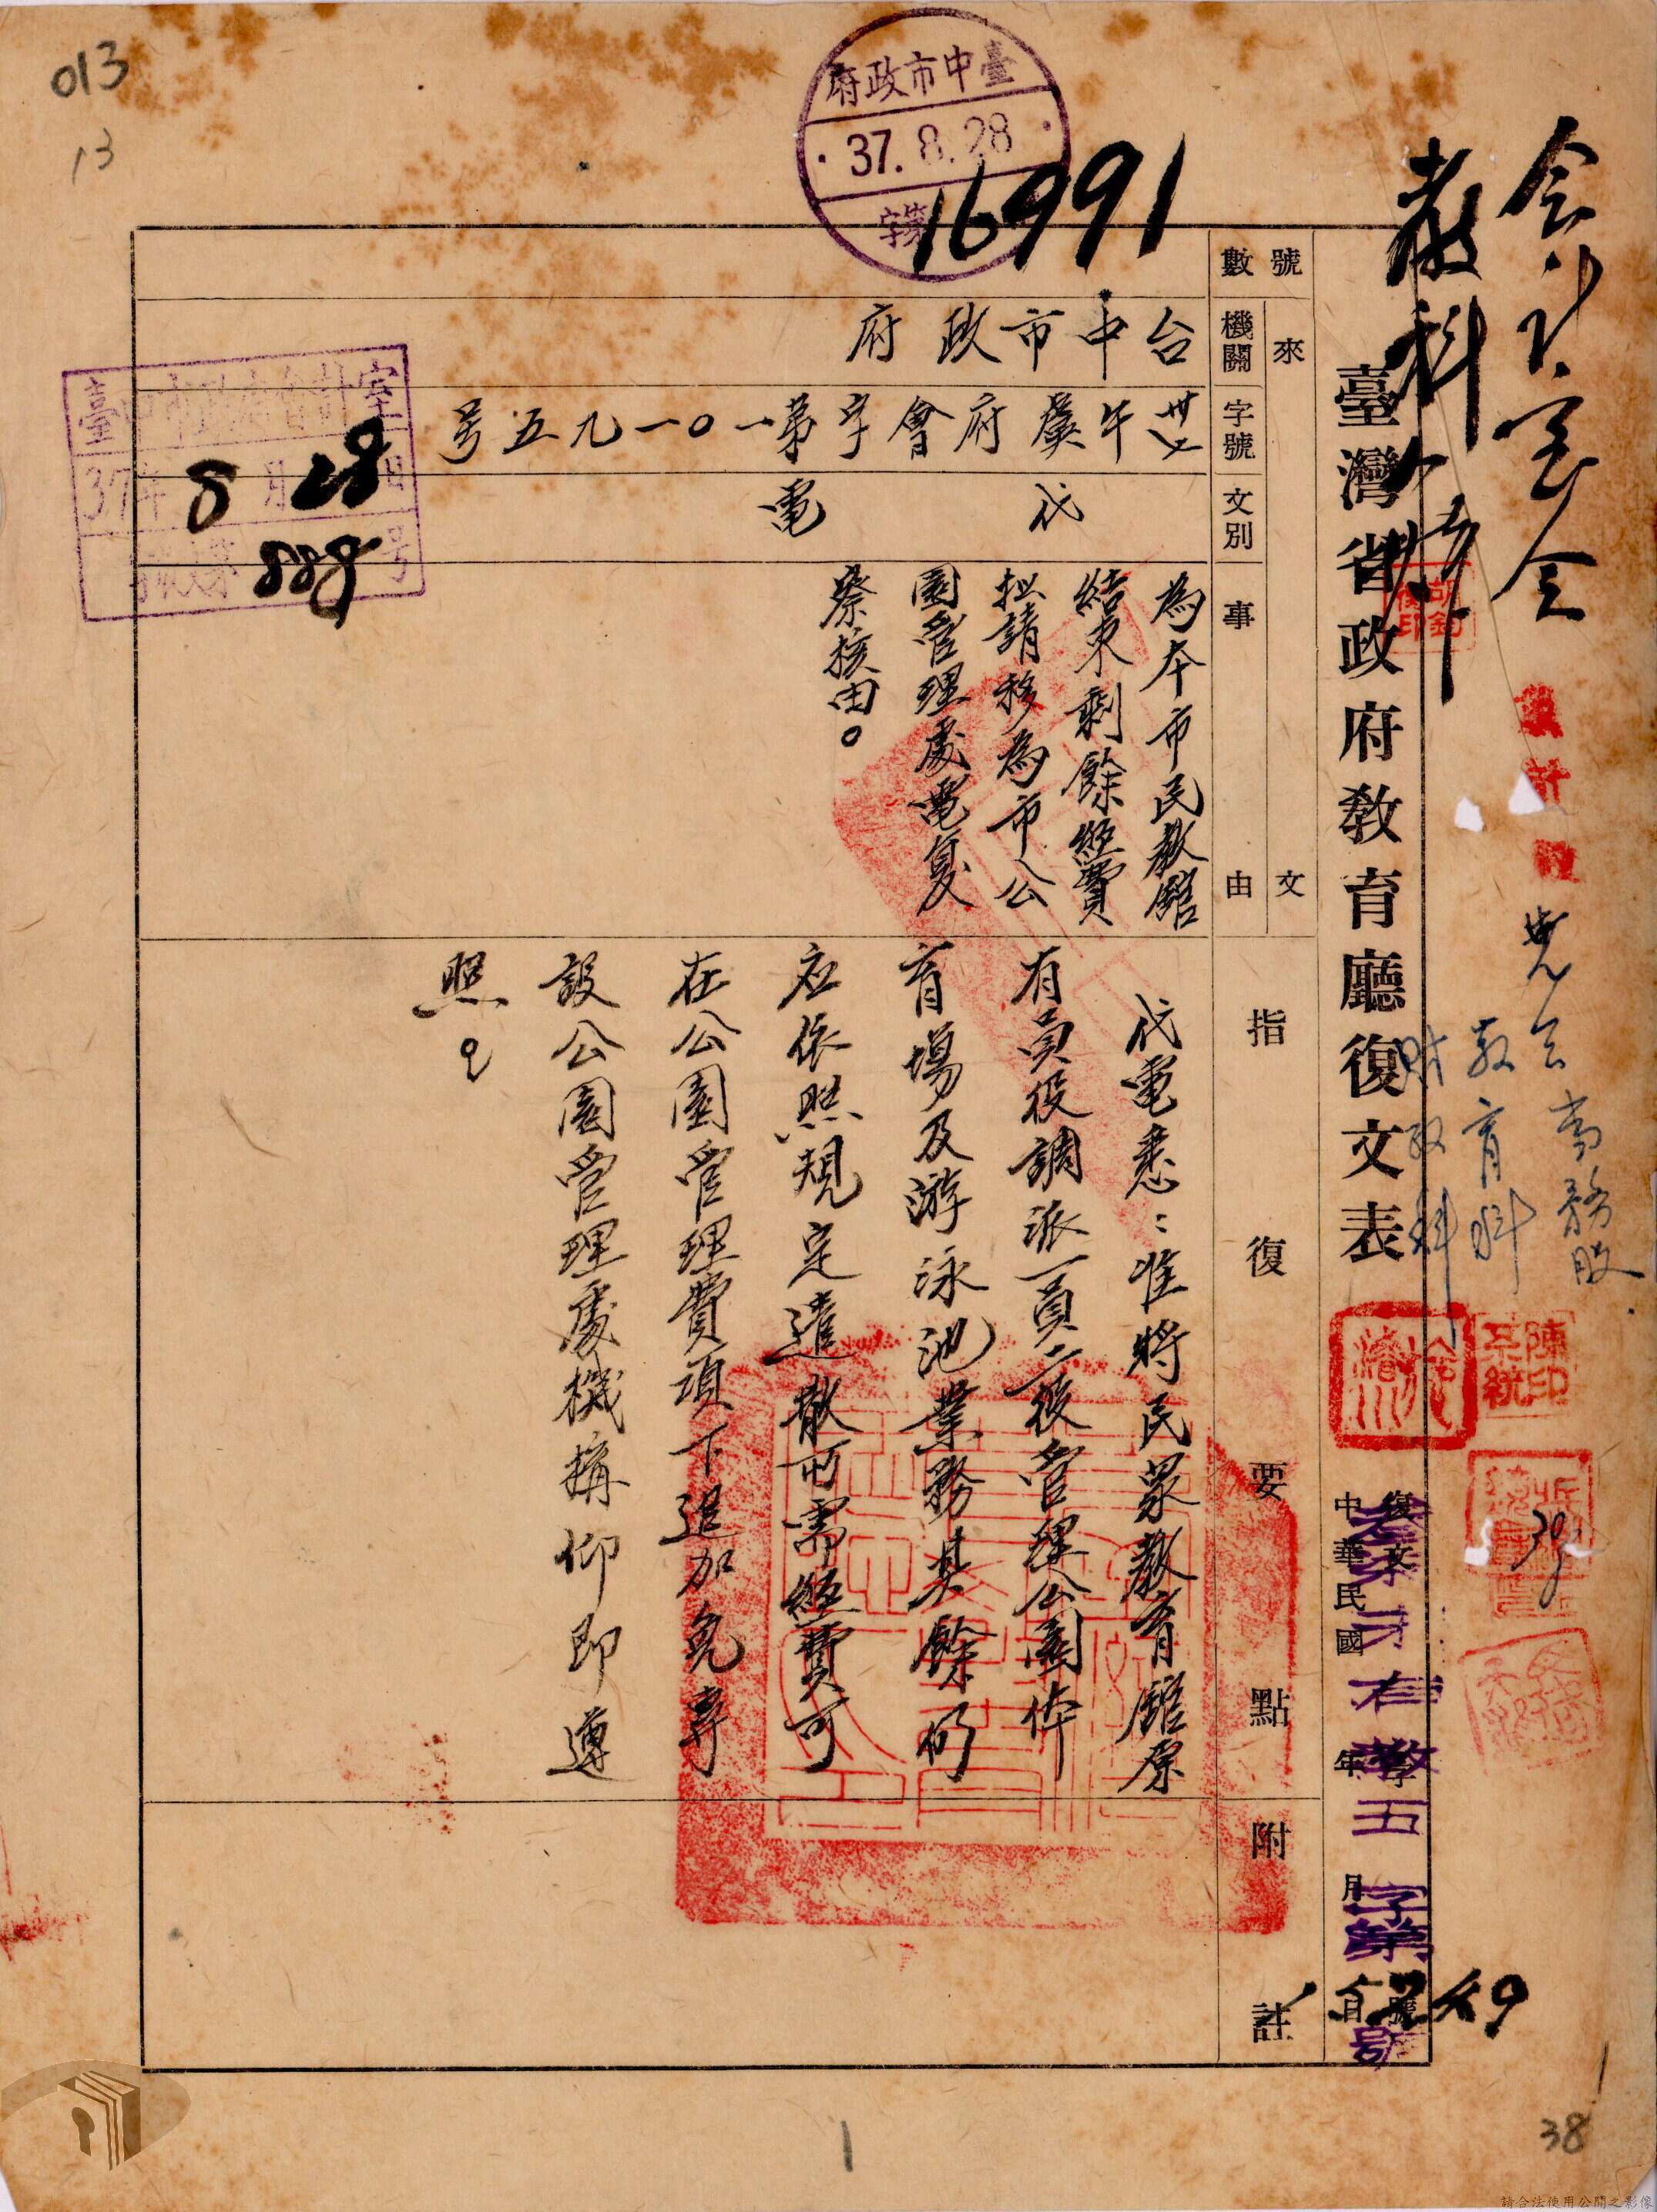 013
13
臺中市政府
37.8.28
字第
16991
會計室會
教科
臺灣省政府教育廳復文表
教育科
財政科
陳印系統
復文
中華民國
年
月
日
字第
號
來文
號數
機關
台中市政府
字號
卅七午虞府會字第一〇一九五号
文別
代電
事由
為本市民教館
結束剩餘經費
擬請移為市公
園管理處電复
察核由。
指復要點
代電悉：准將民眾教育館原
有員役調派一員二役管理公園体
育場及游泳池業務其餘仍
应依照規定遣散所需經費可
在公園管理費項下追加免專
設公園管理處機構仰即遵
照。
附註
臺中市政府會計室
37年8月28日
收文第888号
1
38
請合法使用公開之影像